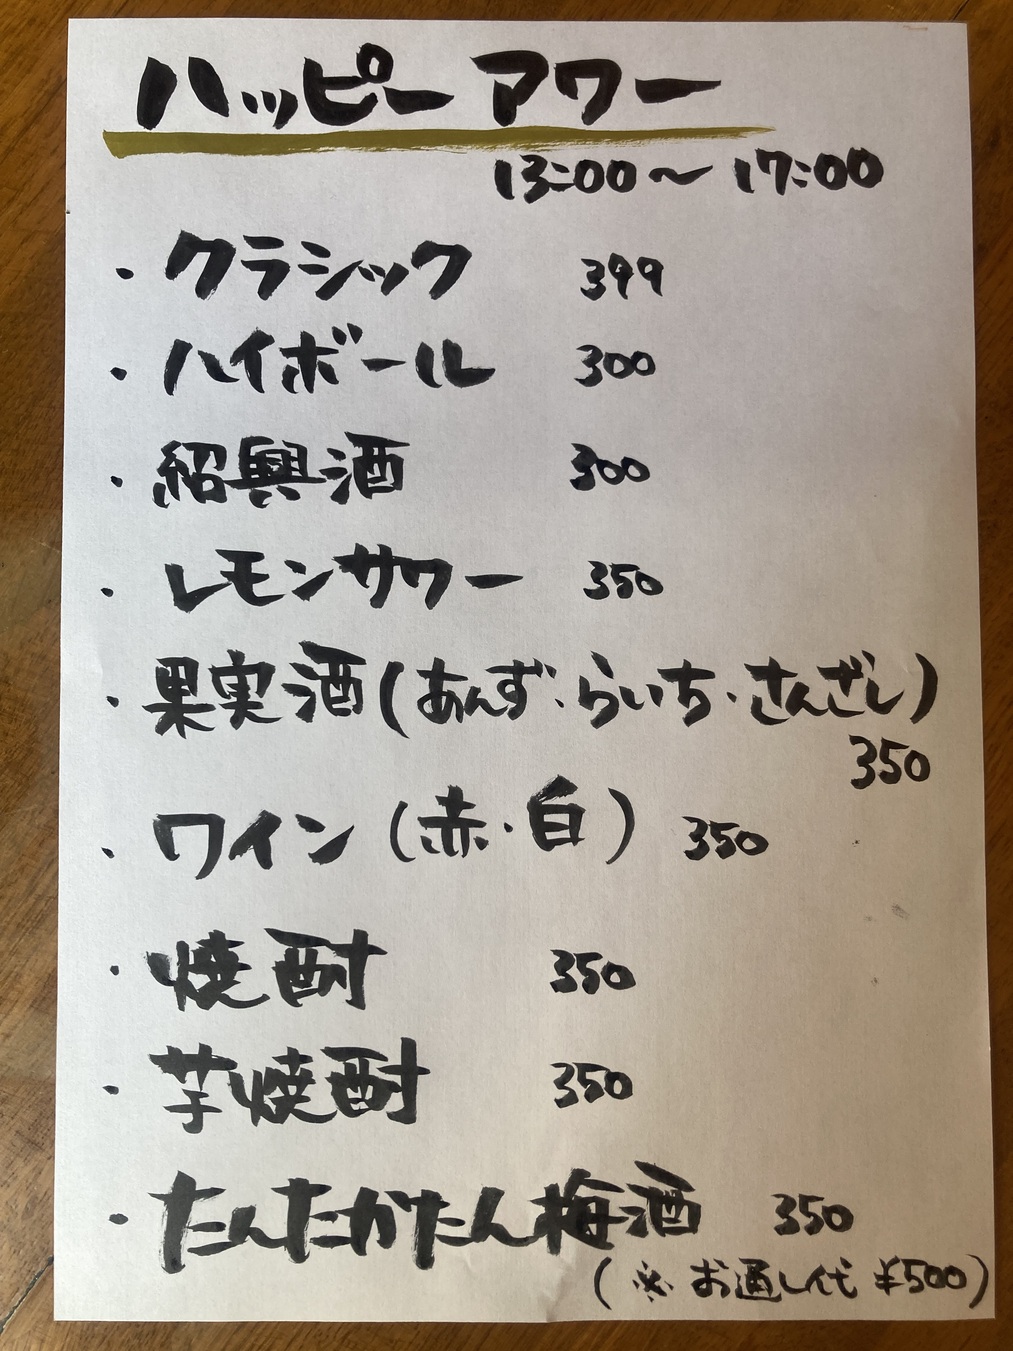 ハッピーアワー
13:00〜17:00
・クラシック 399
・ハイボール 300
・紹興酒 300
・レモンサワー 350
・果実酒(あんず・らいち・さんざし)
350
・ワイン(赤・白) 350
・焼酎 350
・芋焼酎 350
・たんたかたん梅酒 350
(※お通し代 ¥500)